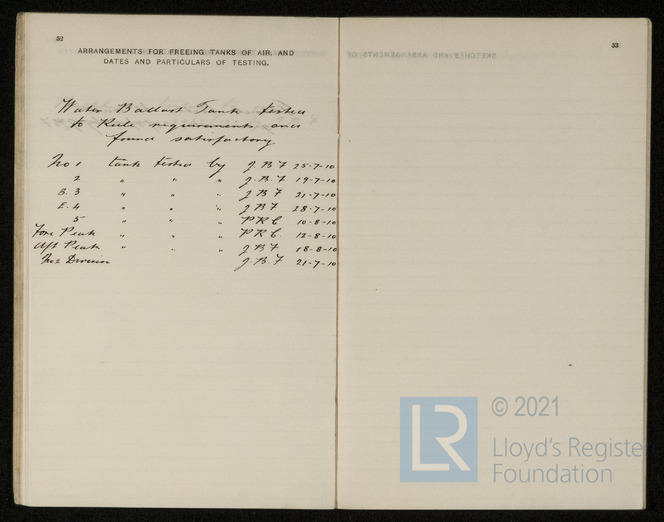 52
ARRANGEMENTS FOR FREEING TANKS OF AIR, AND
DATES AND PARTICULARS OF TESTING.
Water Ballast Tank tested
to Rule requirements and
found satisfactory
No 1 tank tested by J B F 25-7-10
2 " " " J.B.F 19-7-10
B. 3 " " " J B F 21-7-10
E. 4 " " " J B F 28-7-10
5 " " " P R C 10-8-10
Fore Peak " " " P R C. 12-8-10
Aft Peak " " " J B F 18-8-10
No 2 Division J.B.F 21-7-10
53
SKETCHES AND ARRANGEMENTS OF
© 2021
LR
Lloyd's Register
Foundation